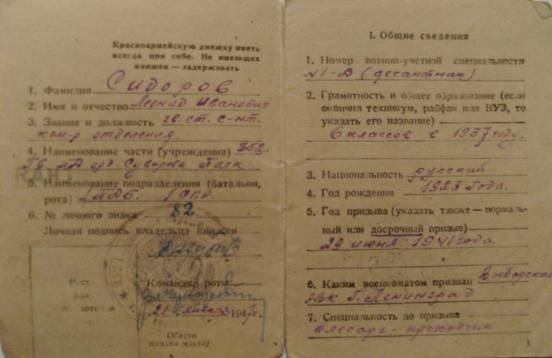 Красноармейскую книжку иметь
всегда при себе. Не имеющих
книжек — задерживать
1. Фамилия Сидоров
2. Имя и отчество Леонид Иванович
3. Звание и должность гв. ст. с-нт.
ком-р отделения
4. Наименование части (учреждения) 352
Гв. орд. Суворова Полк
5. Наименование подразделения (батальон,
рота)
6. № личного знака 82
Личная подпись владельца книжки
Командир роты
21 194
(Место
печати части)
I. Общие сведения
1. Номер военно-учетной специальности
№1-В (десантная)
2. Грамотность и общее образование (если
окончил техникум, рабфак или ВУЗ, то
указать его название)
6 классов в 1937 году.
3. Национальность русский
4. Год рождения 1923 года.
5. Год призыва (указать также — нормаль-
ный или досрочный призыв)
29 июня 1941 года
6. Каким военкоматом призван Выборским
РВК г. Ленинград
7. Специальность до призыва
слесарь-проходчик